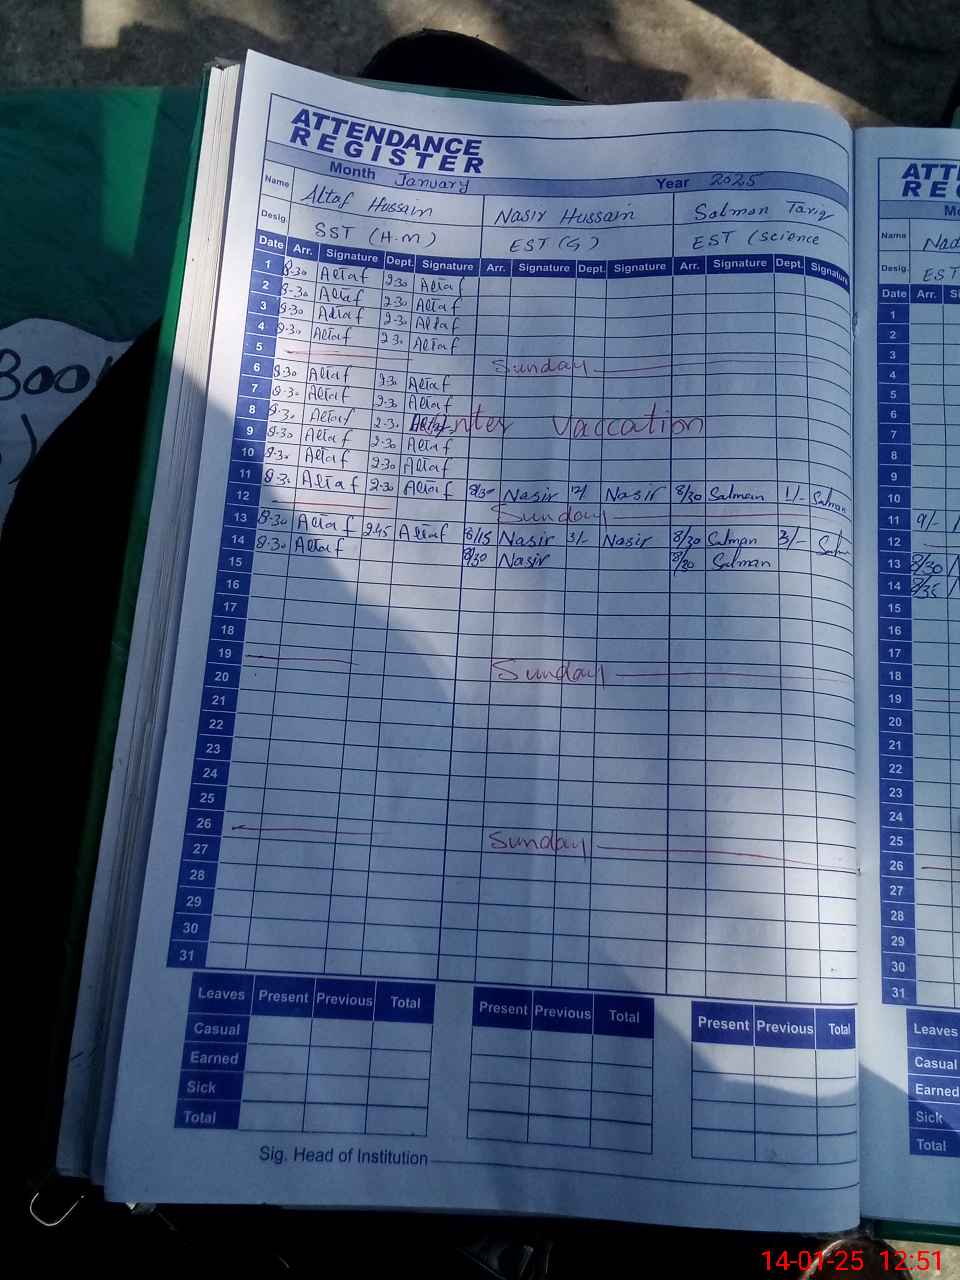 ATTENDANCE
REGISTER
Month January Year 2025
Name Altaf Hussain Nasir Hussain Salman Tariq
Desig. SST (H.M) EST (G) EST (Science
Date Arr. Signature Dept. Signature Arr. Signature Dept. Signature Arr. Signature Dept. Signature
1 8-30 Altaf 2-30 Altaf
2 8-30 Altaf 2-30 Altaf
3 8-30 Altaf 2-30 Altaf
4 8-30 Altaf 2-30 Altaf
5 Sunday
6 8-30 Altaf 2-30 Altaf
7 8-30 Altaf 2-30 Altaf
8 8-30 Altaf 2-30 Altaf Vaccation
9 8-30 Altaf 2-30 Altaf
10 8-30 Altaf 2-30 Altaf
11 8-30 Altaf 2-30 Altaf 8/30 Nasir 12/ Nasir 8/30 Salman 1/- Salman
12 Sunday
13 8-30 Altaf 2-45 Altaf 8/15 Nasir 3/- Nasir 8/30 Salman 3/-
14 8-30 Altaf 8/30 Nasir 8/30 Salman
15
16
17
18
19 Sunday
20
21
22
23
24
25
26 Sunday
27
28
29
30
31
Leaves Present Previous Total Present Previous Total Present Previous Total
Casual
Earned
Sick
Total
Sig. Head of Institution
Name
Desig. EST
Date Arr.
1
2
3
4
5
6
7
8
9
10
11 9/-
12
13 8/30
14 8/35
15
16
17
18
19
20
21
22
23
24
25
26
27
28
29
30
31
Leaves
Casual
Earned
Sick
Total
14-01-25 12:51